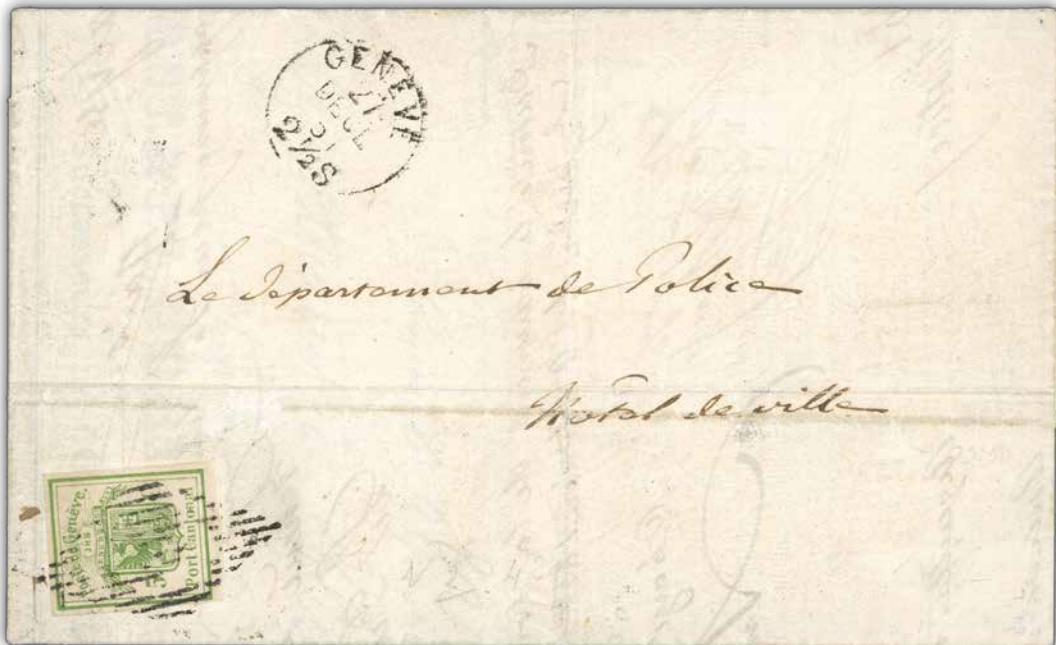 GENÈVE
27
DECE
51
2½S
Le département de Police
Hotel de ville
Poste de Genève.
Port Cantonal